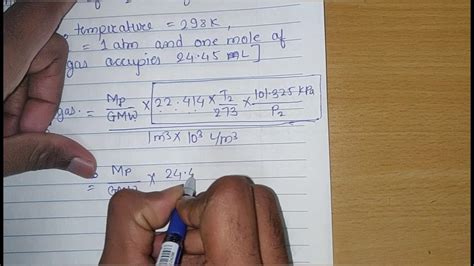 temperature = 298K,
= 1 atm and one mole of
gas occupies 24.45 mL]
gas. = Mp/GMW × 22.414 × T2/273 × 101.325 kPa/P2
1m³ × 10³ L/m³
= Mp/GMW × 24.4